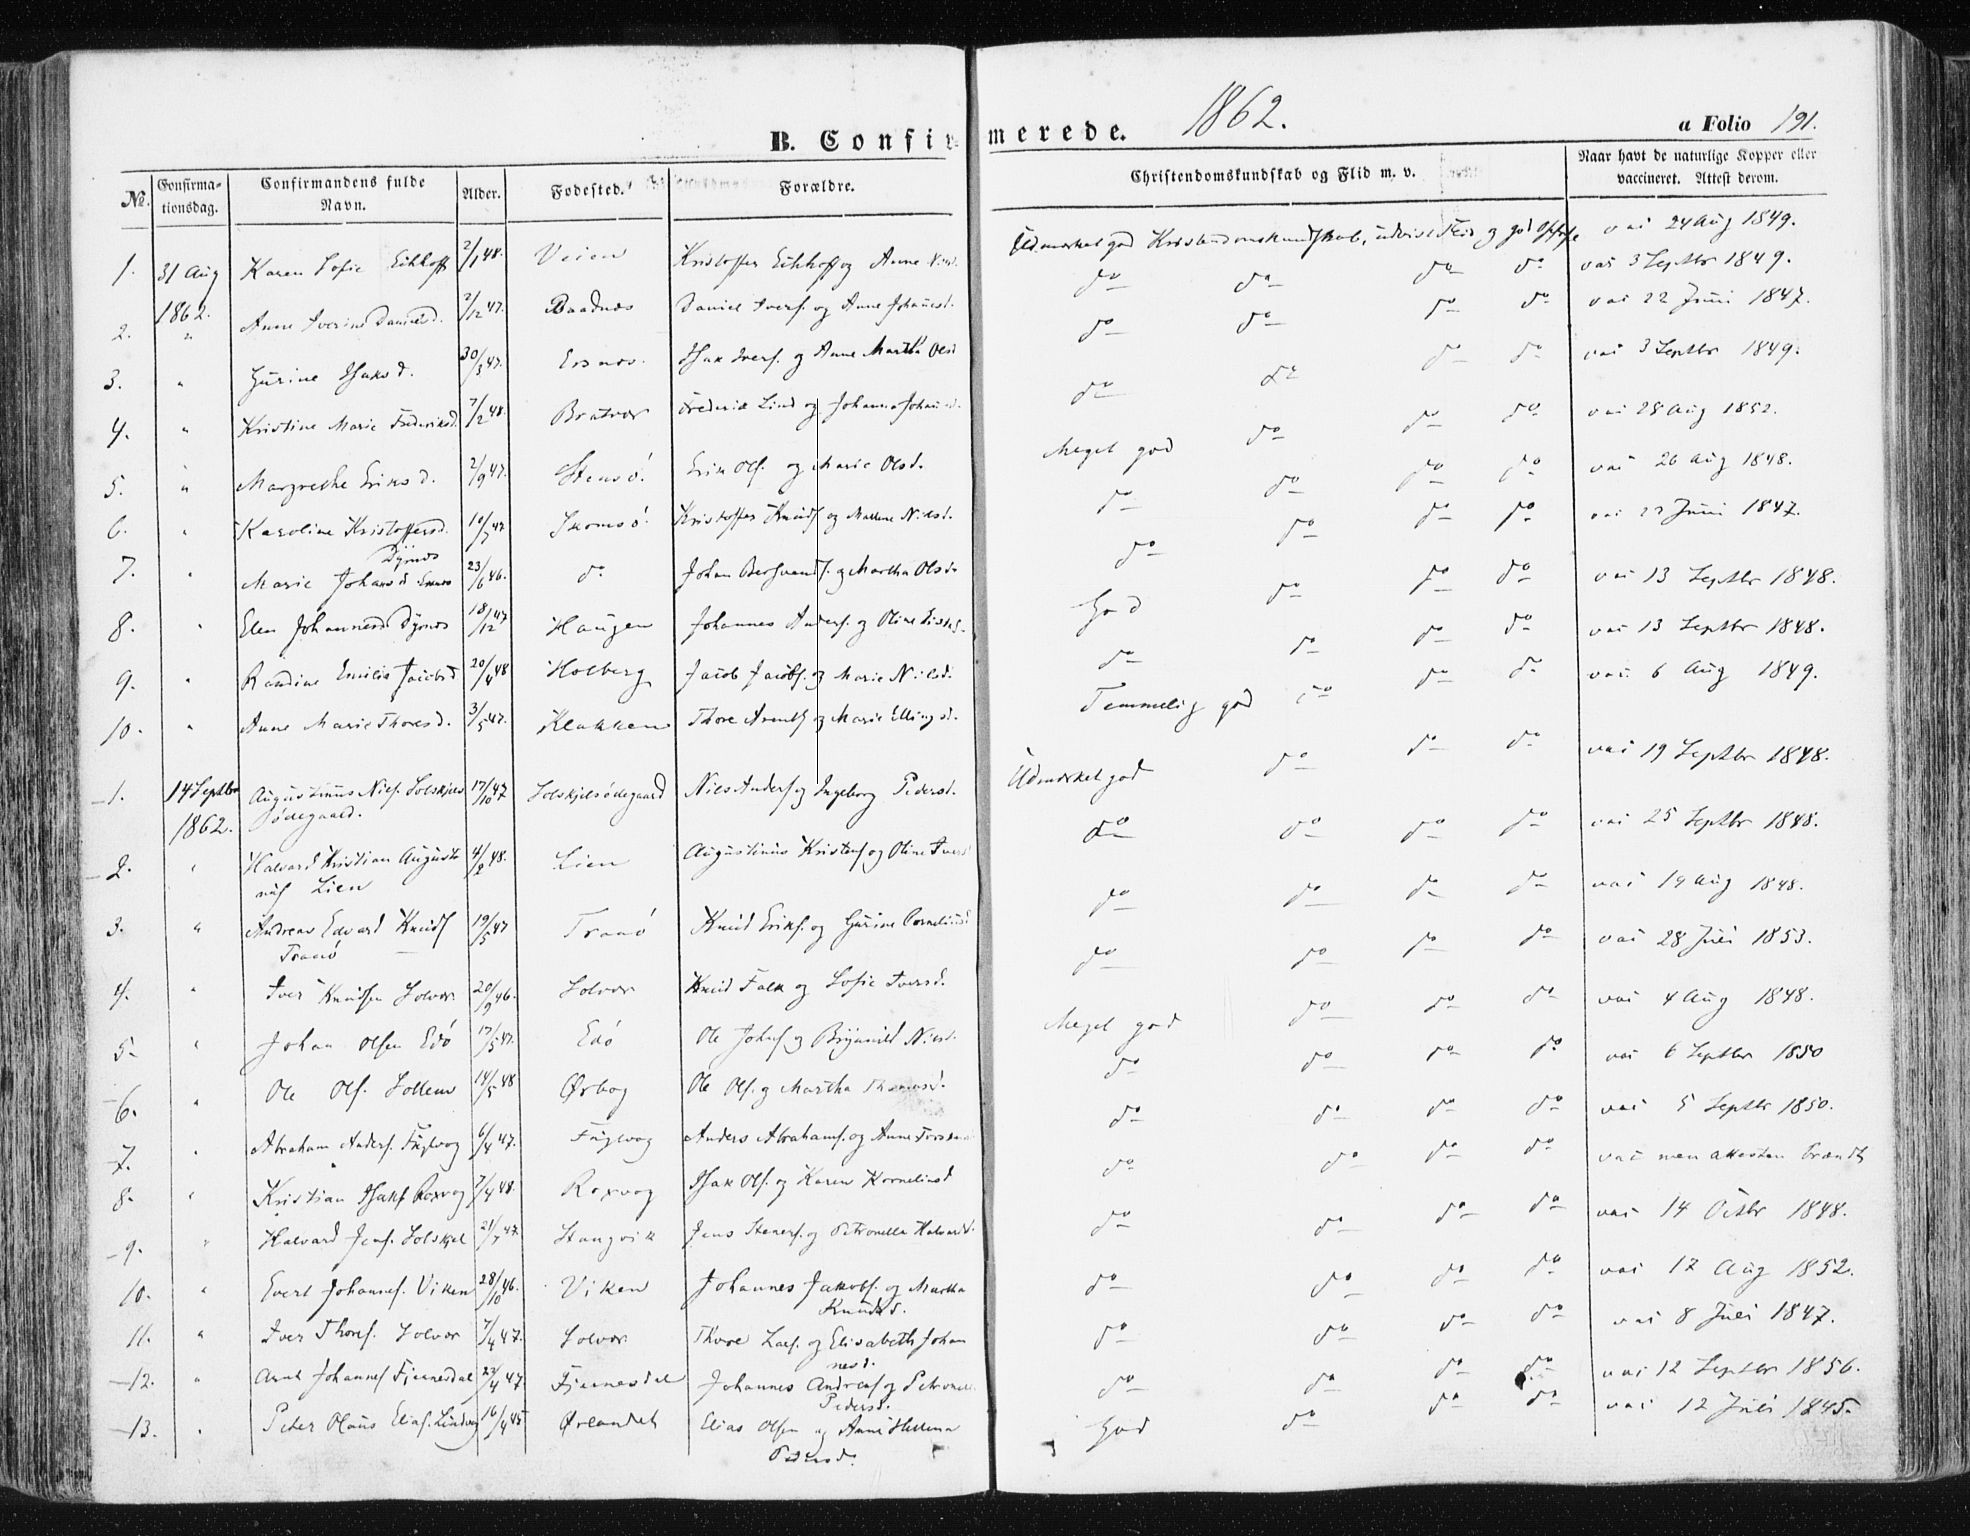 B. Confirmerede. 1862. a Folio 191.
№. Confirmationsdag. Confirmandens fulde Navn. Alder. Fodested. Forældre. Christendomskundskab og Flid m. v. Naar havt de naturlige Kopper eller vaccineret. Attest derom.
1. 31 Aug 1862. Karen Sofie Eikhoff 2/1 48. Veien Kristoffer Eikhoff og Anne Udmærket god Kristendomskundskab, udvist Flid og god vac 24 Aug 1849.
2. " Anne Iverine Danielsd. 2/12 47. Baadnæs Daniel Ivers. og Anne Johansd. do do do do vac 3 Septbr 1849.
3. " Gurine Isaksd. 30/3 47. Isak Ivers. og Anne Martha Olsd do do do do vac 22 Juni 1847.
4. " Kristine Marie Frederiksd. 7/2 48. Bratvær Frederik Lind og Johanna do do do do vac 3 Septbr 1849.
5. " Margrethe Eriksd. 2/9 47. Stensö. Erik Ols. og Marie Olsd. Meget god do do do vac 28 Aug 1852.
6. " Karoline Kristoffersd. 10/7 47 Skomsö. Kristoffer Knuds og Malene Nilsd. do do do do vac 26 Aug 1848.
7. " Marie Johansd Dyrnæs 23/6 46. do Johan Bersvends. og Martha Olsd. do do do do vac 22 Juni 1847.
8. " Elen Johannesd Dyrnæs 18/12 47 Haugen Johannes Anders. og Oline God do do do vac 13 Septbr 1848.
9. " Randine Emilie Jacobsd 20/4 48 Holberg Jacob Jacobs. og Marie Nilsd. do do do do vac 13 Septbr 1848.
10. " Anne Marie Thoresd. 3/5 47. Klakken Thore Arents og Marie Ellingsd. Temmelig god do do do vac. 6 Aug 1849.
1. 14 Septbr 1862. Augustinus Nils. Solskjels ödegaard. 17/10 47 Solskjelsödegaard Nils Anders og Ingeborg Pedersd. Udmærket god do do do vac 19 Septbr 1848.
2. " Halvard Kristian Augusti nus Lien 4/2 48. Lien Augustinus Kristens og Oline Ivers do do do do vac 25 Septbr 1848.
3. " Andreas Edvard Knuds Tranö 19/5 47 Tranö Knud Eriks. og Gurine Corneliusd do do do do vac 19 Aug 1848.
4. " Iver Knudsen Solvær 20/9 46. Solvær Knud Falk og Sofie Iversd. do do do do vac 28 Juli 1853.
5. " Johan Olsen Edö 17/5 47. Edö Ole Johns og Brynild Nilsd. Meget god do do do vac 4 Aug 1848.
6. " Ole Ols. Sollem 14/5 48 Ørbog Ole Ols. og Martha Thomasd. do do do do vac 6 Septbr 1850
7. " Abraham Anders. Fuglvog 6/4 47. Fuglvog Anders Abrahams. og Anne do do do do vac 5 Septbr 1850.
8. " Kristian Isaks Roxvog 7/4 48. Roxvog Isak Ols. og Karen Korneliusd do do do do vac men attesten brændt
9. " Halvard Jens. Solskjel 21/7 47. Stangvik Jens Steners. og Petronella Halvardsd. do do do do vac 14 Octbr 1848.
10. " Evert Johannes. Viken 28/10 46. Viken Johannes Jakobs. og Martha Knudsd. do do do do vac 17 Aug 1852.
11. " Iver Thores. Solvær 7/4 47. Solvær Thore Lars. og Elisabeth Johan nesd. do do do do vac 8 Juli 1847.
12. " Arnt Johannes Fjernesdal 23/4 47. Fjernesdal Johannes Andreas og Petronel Pedersd. do do do do vac 12 Septbr 1856.
13. " Peter Olaus Elias. Lindvog 16/4 45 Ørlandet Elias Olsen og Anne Helena Pedersd. God do do do vac 12 Juli 1845.